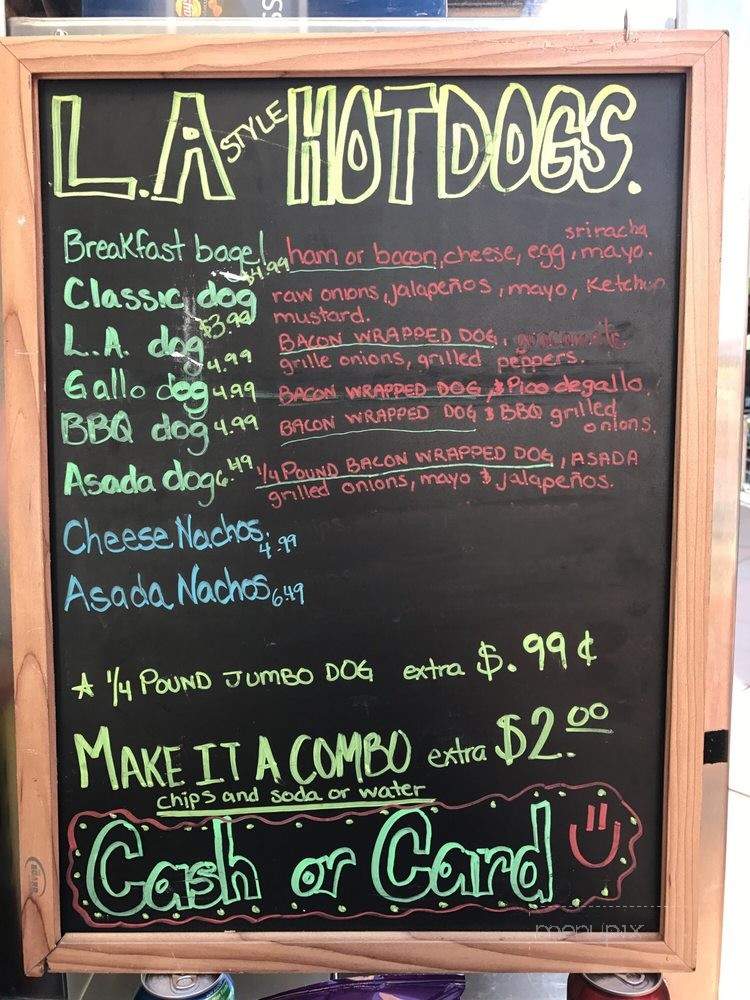 L.A STYLE HOTDOGS.
sriracha
Breakfast bagel $4.99 ham or bacon, cheese, egg, mayo.
Classic dog $3.99 raw onions, jalapeños, mayo, Ketchup
mustard.
L.A. dog 4.99 BACON WRAPPED DOG,
grille onions, grilled peppers.
Gallo dog 4.99 BACON WRAPPED DOG, & Pico degallo.
BBQ dog 4.99 BACON WRAPPED DOG & BBQ grilled
onions.
Asada dog 6.49 1/4 POUND BACON WRAPPED DOG, ASADA
grilled onions, mayo & jalapeños.
Cheese Nachos 4.99
Asada Nachos 6.49
☆ 1/4 POUND JUMBO DOG extra $.99 ¢
MAKE IT A COMBO extra $2.00
chips and soda or water
Cash or Card
menupix